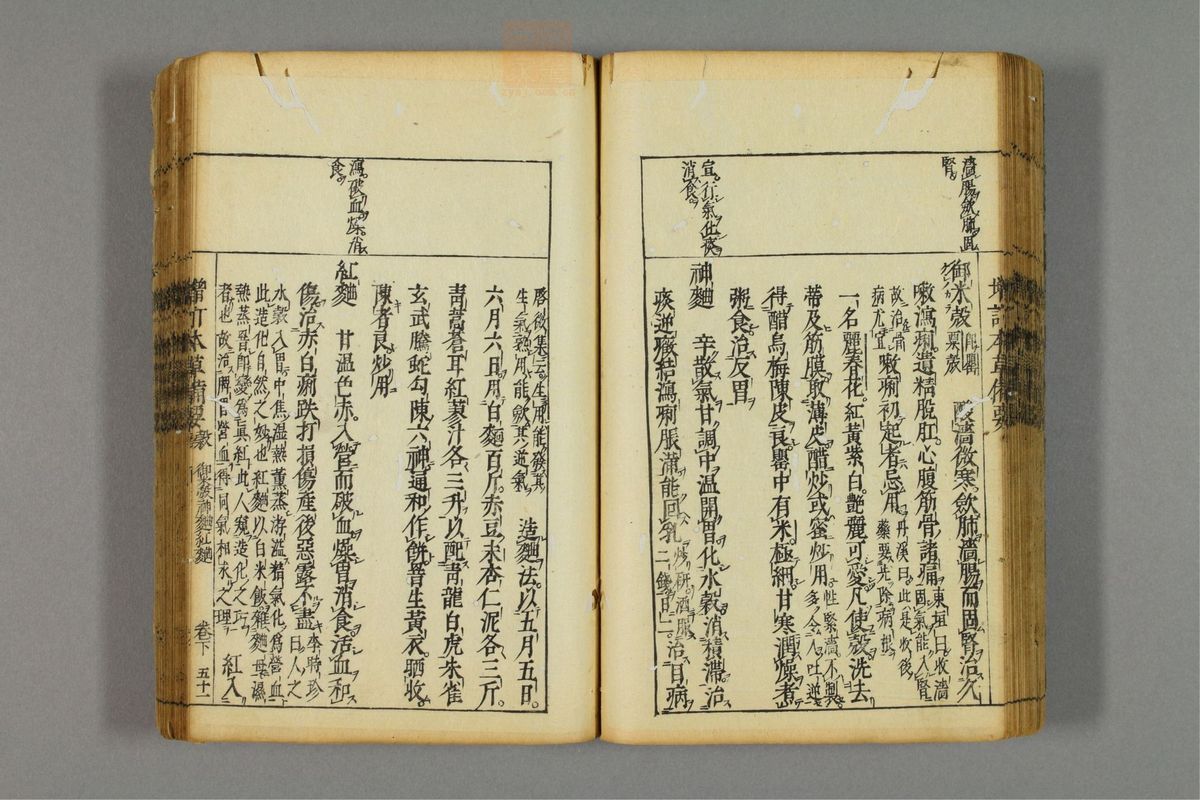 濇腸歛肺固
腎
御米殼 即罌
粟殼
酸濇微寒歛肺濇腸而固腎治久
嗽瀉痢遺精脫肛心腹筋骨諸痛 東垣曰收濇
固氣能入腎
故治骨
病尤宜
嗽痢初起者忌用 丹溪曰此是收後
藥要先除病根
一名麗春花紅黃紫白艷麗可愛凡使殼洗去
蒂及筋膜取薄皮醋炒或蜜炒用 性緊濇不制
多令人吐逆
得醋烏梅陳皮良罌中有米極細甘寒潤燥煮
粥食治反胃
宣行氣化痰
消食
神麯 辛散氣甘調中温開胃化水穀消積滯治
痰逆癥結瀉痢脹滿能回乳 炒研酒服
二錢日二
治目病
啓後集云生用能發其
生氣熟用能歛其逆氣
造麯法以五月五日
六月六日用白麵百斤赤豆末杏仁泥各三斤
靑蒿蒼耳紅蓼汁各三升以配靑龍白虎朱雀
玄武騰蛇勾陳六神通和作餠罯生黃衣晒收
陳者良炒用
瀉破血燥消
食
紅麯 甘温色赤入營而破血燥胃消食活血和
傷治赤白痢跌打損傷產後惡露不盡 李時珍
曰人之
水穀入胃中焦湿熱薰蒸游溢精氣化爲營血
此造化自然之妙也紅麯以白米飯雜麯母濕
熱蒸罯即變爲眞紅此人窺造化之巧
者也故治脾胃營血得同氣相求之理
紅入
增訂本草備要
穀
御米殼神麯紅麯
卷下
五十一
增訂本草備要